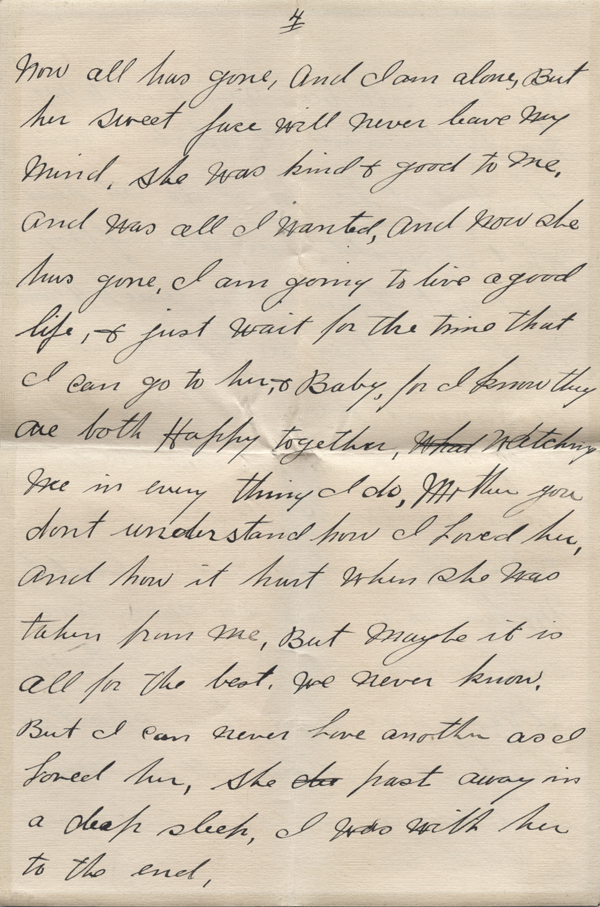 4
Now all has gone, And I am alone, But
her sweet face will never leave My
Mind, she was kind & good to Me,
And was all I wanted, And Now she
has gone, I am going to live a good
life, & just wait for the time that
I can go to her, & Baby, for I know they
are both Happy together, What Watching
Me in every thing I do, Mother you
dont understand how I Loved her,
And how it hurt when she was
taken from Me, But Maybe it is
all for the best. We never know.
But I can never Love another as I
Loved her, she past away in
a deep sleep, I was with her
to the end,